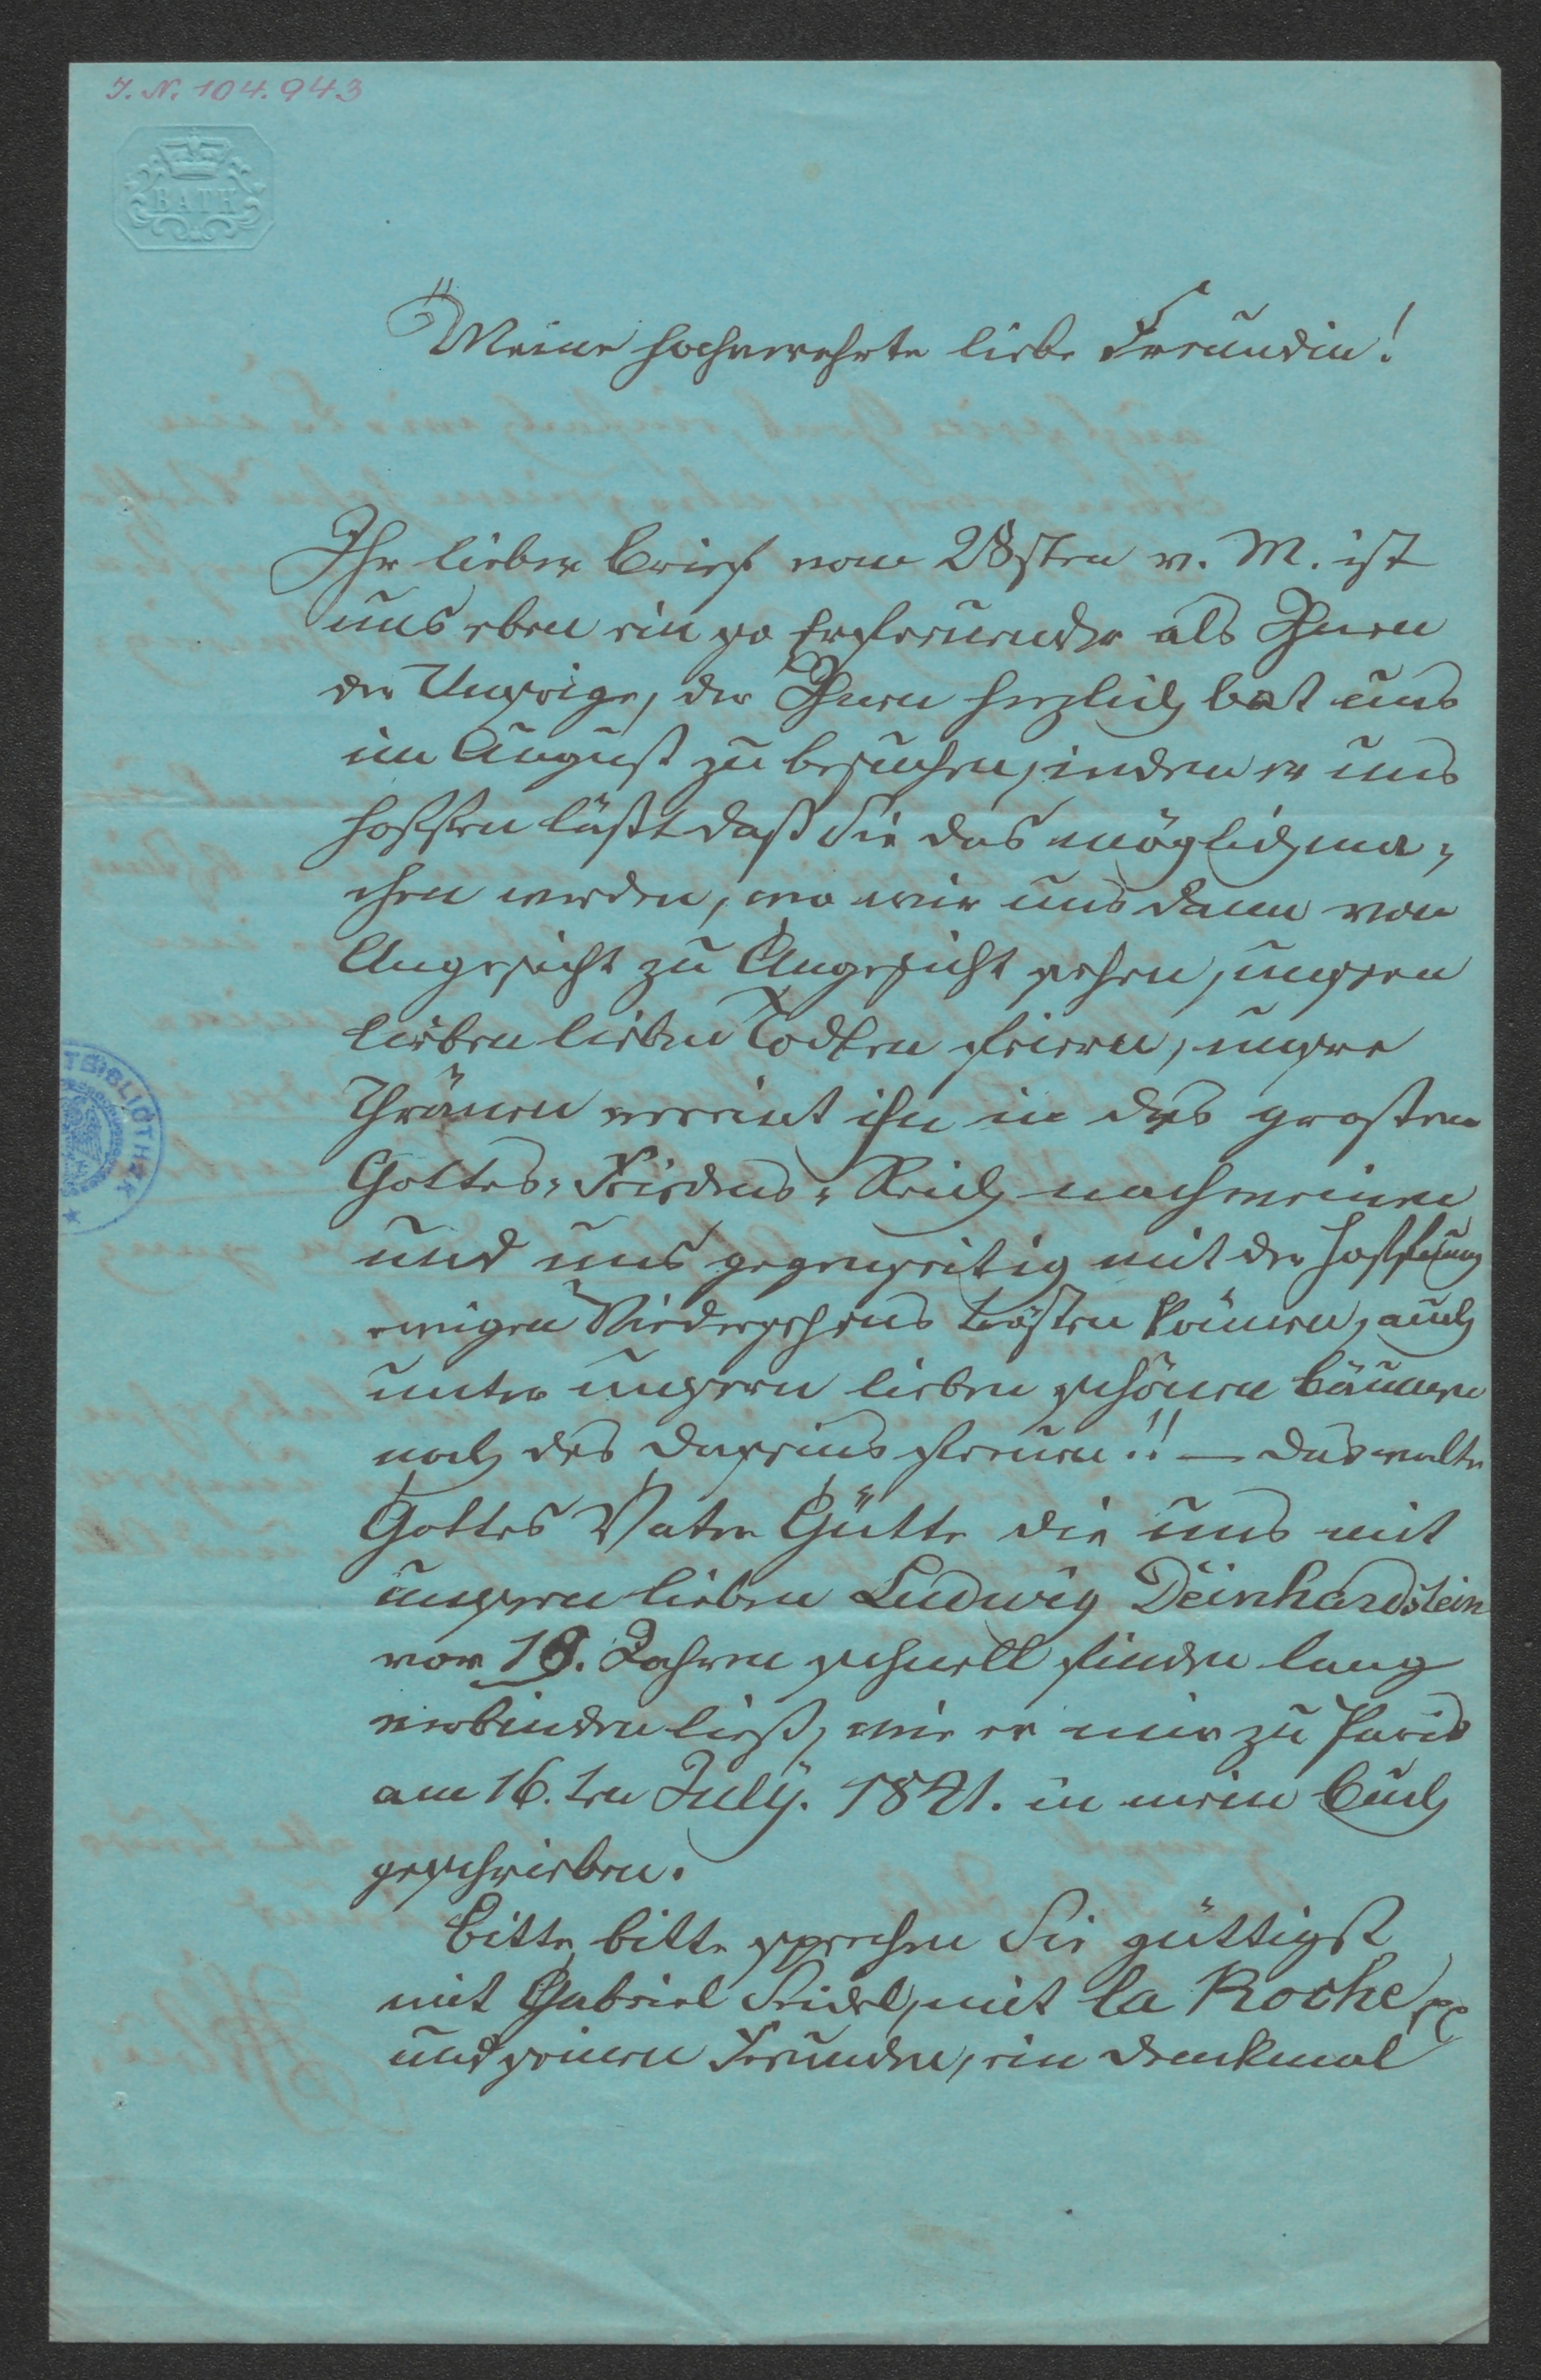 I. N. 104.943
BATH
Meine hochverehrte liebe Freundin!
Ihr lieber Brief vom 28sten v. M. ist
uns eben ein so Erfreuender als Ihnen
der Unsrige, der Ihnen herzlich bat uns
im August zu besuchen, indem er uns
hoffen läßt daß Sie das möglich ma„
chen werden, wo wir uns dann von
Angesicht zu Angesicht sehen, unsren
lieben lieben Todten feiern, unsre
Thränen vereint ihn in das großen
Gottes„Friedens„Reich nachweinen
und uns gegenseitig mit der Hoffnung
ewigen Wiedersehens trösten können, auch
unter unsren lieben schönen Bäumen
noch des Daseins freuen!! — das walte
Gottes Vater Gütte die uns mit
unsren lieben Ludwig Deinhardstein
vor 18. Jahren schnell finden lang
verbinden ließ, wie er mir zu Paris
am 16.ten July. 1841. in mein Buch
geschrieben.
Bitte, bitte sprechen Sie güttigst
mit Gabriel Seidl, mit la Roche
und seinen Freunden, ein Denkmal
TBIBLIOTHEK